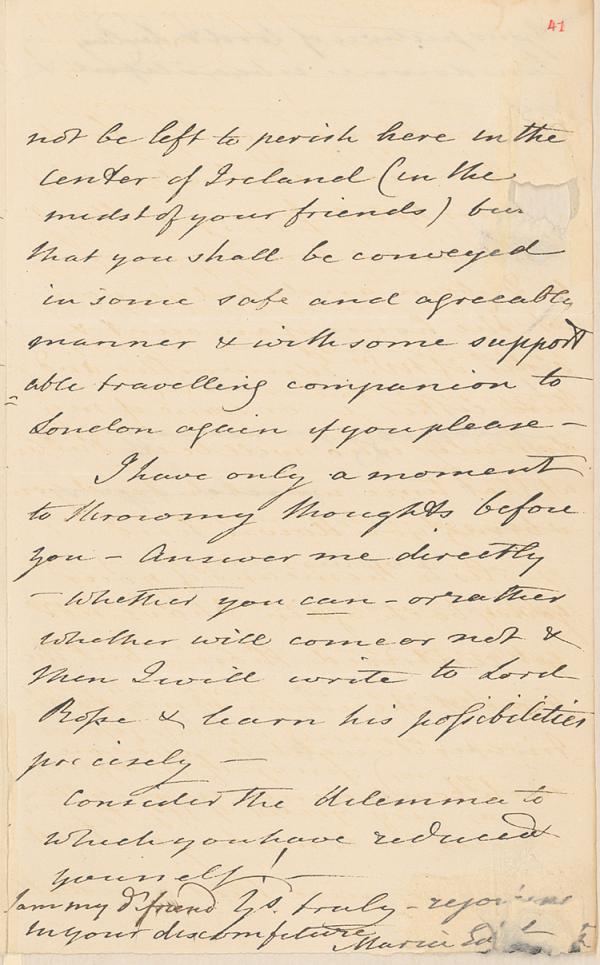 41
not be left to perish here in the
center of Ireland (in the
midst of your friends) but
that you shall be conveyed
in some safe and agreeable
manner & with some support
able travelling companion to
London again if you please —
I have only a moment
to throw my thoughts before
you — Answer me directly
— whether you can — or rather
whether will come or not &
then I will write to Lord
Rosse & learn his possibilities
precisely —
Consider the dilemma to
which you have reduced
yourself! —
I am my dr friend Yrs. truly —
in your discomfiture Maria